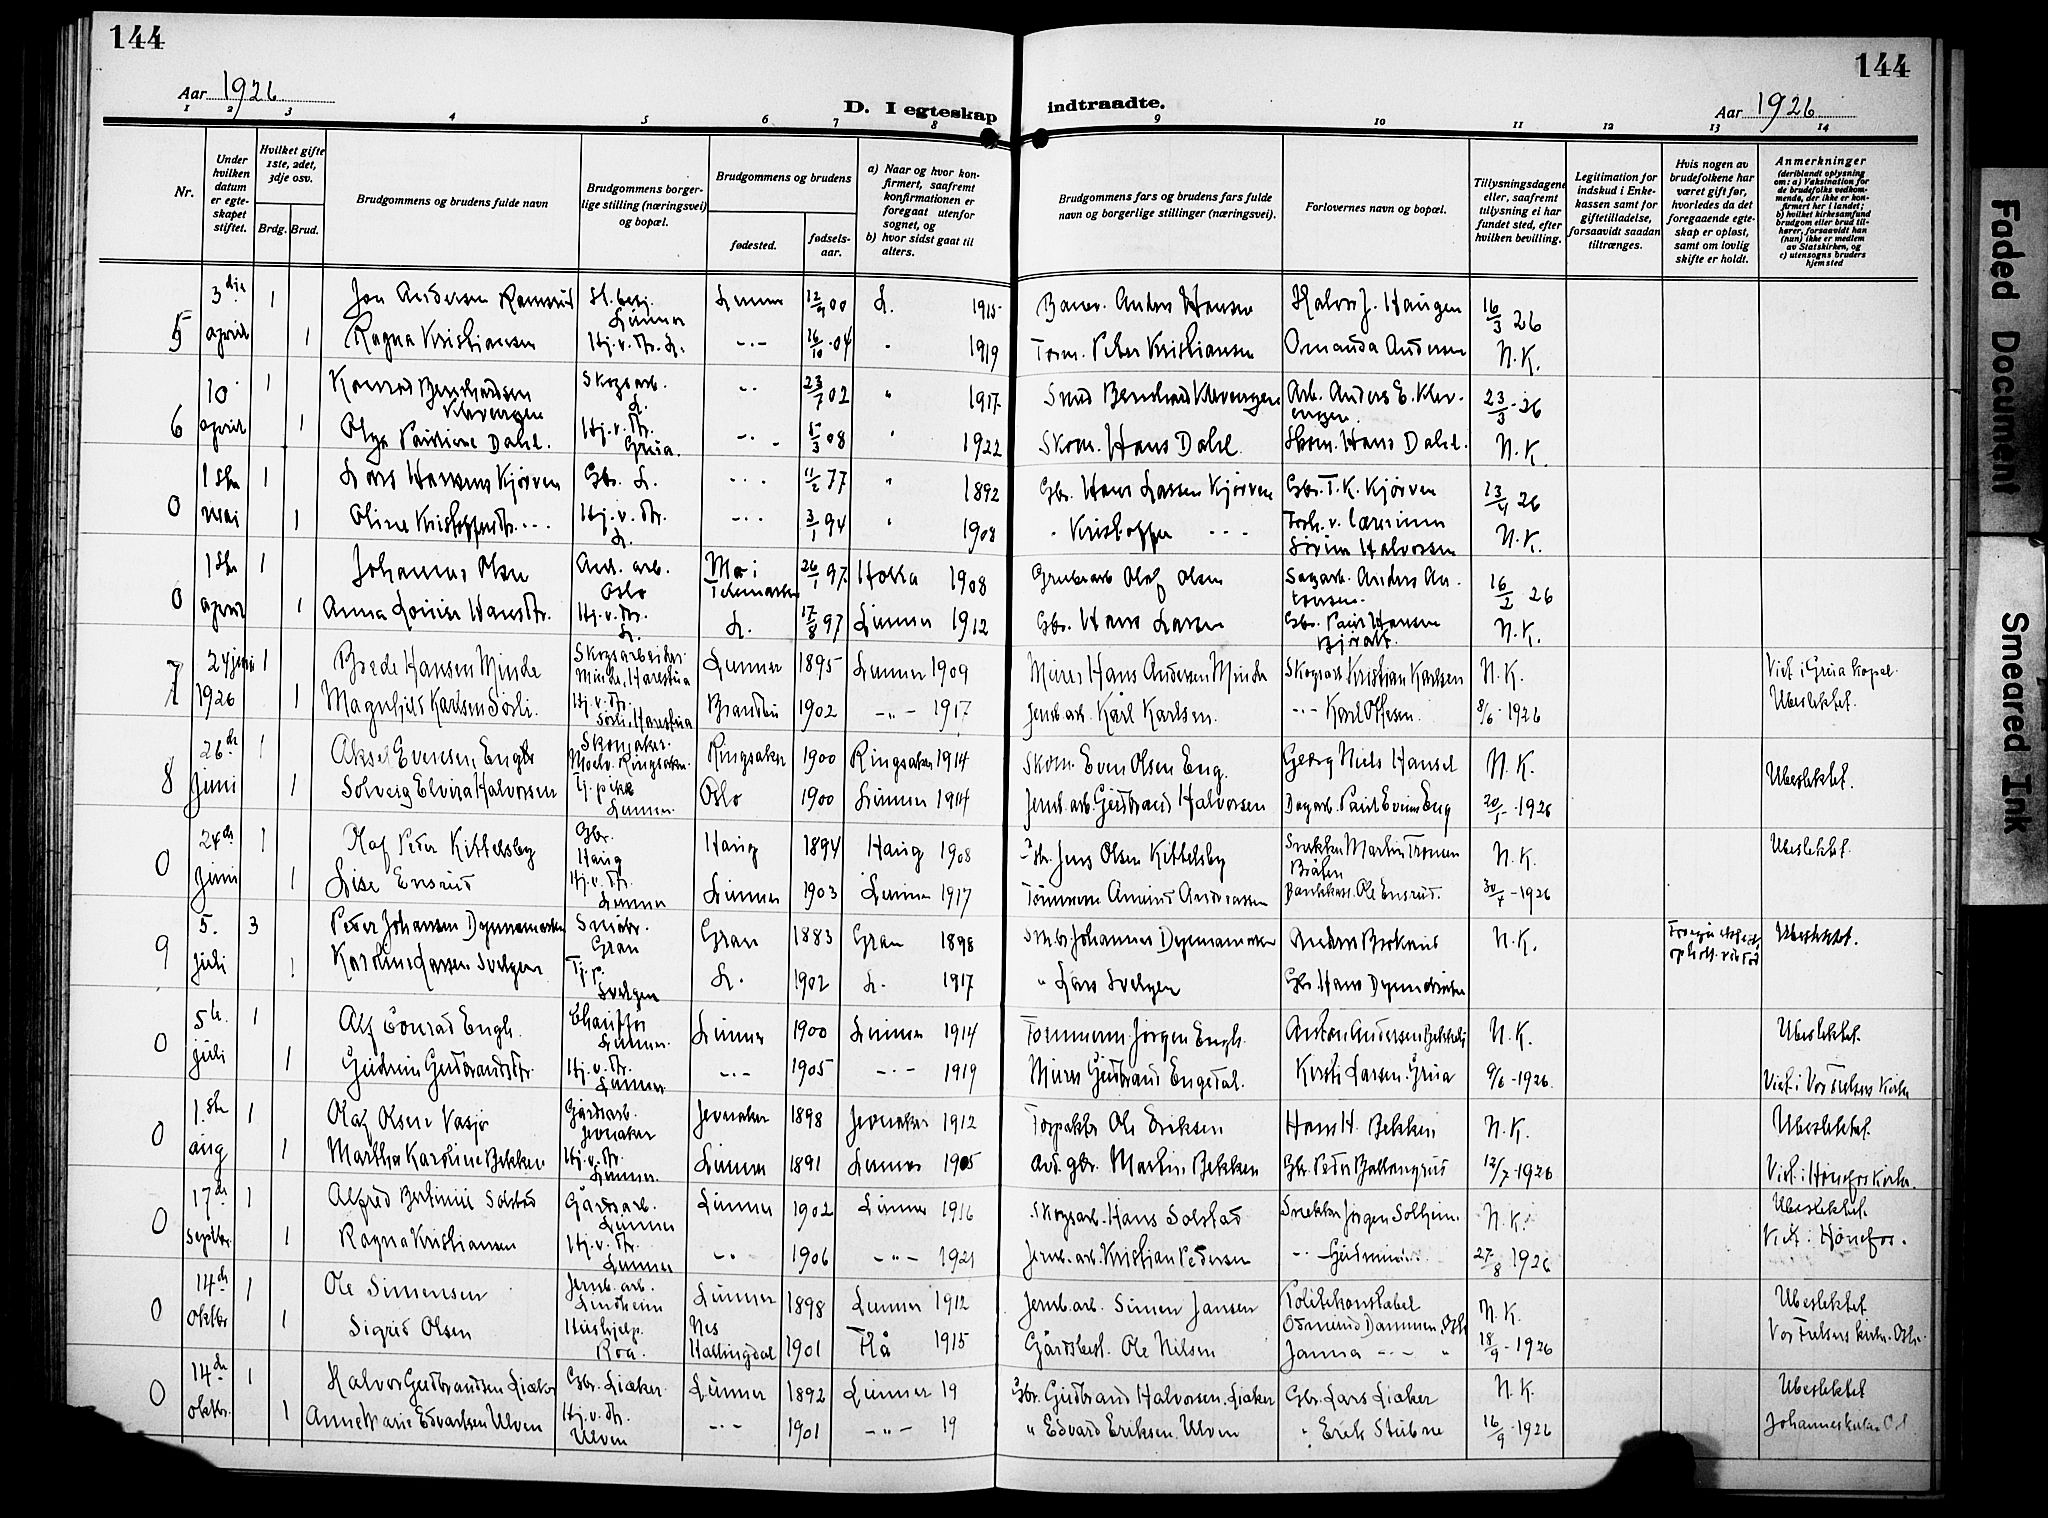 144
144
Aar 1926
D. I egteskap indtraadte.
Aar 1926
1 2 3 4 5 6 7 8 9 10 11 12 13 14
Nr.
Under hvilken datum er egteskapet stiftet.
Hvilket gifte 1ste, 2det, 3dje osv.
Brdg. Brud.
Brudgommens og brudens fulde navn
Brudgommens borgerlige stilling (næringsvei) og bopæl.
Brudgommens og brudens
fødested.
fødselsaar.
a) Naar og hvor konfirmert, saafremt konfirmationen er foregaat utenfor sognet, og
b) hvor sidst gaat til alters.
Brudgommens fars og brudens fars fulde navn og borgerlige stillinger (næringsvei).
Forlovernes navn og bopæl.
Tillysningsdagene eller, saafremt tillysning ei har fundet sted, efter hvilken bevilling.
Legitimation for indskud i Enkekassen samt for giftetilladelse, forsaavidt saadan tiltrænges.
Hvis nogen av brudefolkene har været gift før, hvorledes da det foregaaende egteskap er opløst, samt om lovlig skifte er holdt.
Anmerkninger (deriblandt oplysning om: a) Vaksination for de brudefolks vedkommende, der ikke er konfirmert her i landet; b) hvilket kirkesamfund brudgom eller brud tilhører, forsaavidt han (hun) ikke er medlem av Statskirken, og c) utensogns bruders hjemsted
5 3dje april 1 Jon Andersen Ramsrud Lunner Lunner 12/9 00 L. 1915 Anders Hansen Halvor J. Haugen 16/3 26
1 Ragna Kristiansen Hj.v. Fr. L. -"- 16/10 04 " 1919 Peter Kristiansen Amanda Andersen N.K.
6 10 april 1 Konrad Bernhardsen Klevengen Skogsarb. L. -"- 23/7 02 " 1917 Bernhard Klevengen Arb. Anders E. Klevengen 23/3 - 26
1 Olga Pauline Dahl. Hj.v. Fr. Grua. -"- 5/3 08 " 1922 Skom. Hans Dahl Skom. Hans Dahl. N.K.
0 1ste mai 1 Lars Hansen Kjørven Gbr. L. -"- 11/2 77 " 1892 Gbr. Hans Larsen Kjørven Gbr. T. K. Kjørven 13/4 26
1 Oline Kristoffersdtr. -"- Hj.v. Fr. L. -"- 3/1 94 " 1908 " Kristoffer -"- Halvorsen N.K.
0 1ste april 1 Johannes Olsen And. arb. Oslo Telemarken 26/1 97 Holla 1908 Grubearb Olaf Olsen Sagarb. Anders 16/2 26
1 Anna Louise Hansdtr. Hj.v. Fr. L. L. 17/8 97 Lunner 1912 Gbr. Hans Larsen Gbr. Paul Hansen N.K.
7 24 juni 1926 1 Brede Hansen Minde Skogsarbeider Minde, Harestua Lunner 1895 Lunner 1909 Murer Hans Andersen Minde Skogsarb Kristian Karlsen N.K. Viet i Grua kapel.
1 Magnhild Karlsen Sørli. Hj.v. Fr. Sørli, Harestua Brandbu 1902 -"- 1917 Jernb.arb. Karl Karlsen. -"- Karl Olsen. 8/6 - 1926 Ubeslektet.
8 26de juni 1 Aksel Evensen Eng Skomaker. Moelv. Ringsaker. Ringsaker 1900 Ringsaker 1914 Skom. Even Olsen Eng. Georg Niels Hansel N.K. Ubeslektet.
1 Solveig Elvira Halvorsen Tj. pike Lunner. Oslo 1900 Lunner 1914 Jernb. arb. Gudbrand Halvorsen Dagarb. Paul Evensen Eng 1926
0 24de juni 1 Olaf Peder Kittelsby Gbr. Haug Haug 1894 Haug 1908 Gbr. Jens Olsen Kittelsby Snekker Martin Tronsen Bråten N.K. Ubeslektet.
1 Lise Ensrud Hj.v. Fr. Lunner Lunner 1903 Lunner 1917 Tømmerm Amund Andreassen Bankkass. Ole Ensrud. 1926
9 5. juli 3 Peder Johansen Dynnamarken Småbr. Gran Gran 1883 Gran 1898 Småbr Johannes Dynnamarken N.K. Ubeslektet.
1 Karoline Larsen Svelgen Tj.p. Svelgen L. 1902 L. 1917 " Lars Svelgen Gbr Hans
0 5te juli 1 Alf Conrad Engh. Chauffør Lunner. Lunner 1900 Lunner 1914 Tømmerm Jørgen Engh. Anton Andersen N.K. Ubeslektet.
1 Gudrun Gudbrandsdtr. Hj.v. Fr. Lunner -"- 1905 -"- 1919 Murer Gudbrand Engedal. Kersti Larsen. Grua 9/6 - 1926. Viet i Vor Frelsers Kirke
0 1.ste aug 1 Olaf Olsen Vasjø Gårdsarb. Jevnaker Jevnaker 1898 Jevnaker 1912 Ole Eriksen Hans H. Bekken N.K. Ubeslektet.
1 Martha Karoline Bekken Hj.v. Fr. Lunner. Lunner 1891 Lunner 1905 gbr. Martin Bekken Gbr Peder Ballangrud 12/7 - 1926 Viet i Hønefos kirke.
0 17de septbr. 1 Alfred Bertinius Solstad Gårdsarb. Lunner Lunner 1902 Lunner 1916 Skogsarb. Hans Solstad Snekker Jørgen Solheim. N.K. Ubeslektet.
1 Ragna Kristiansen Hj.v. Fr. Lunner -"- 1906 -"- 1921 Jernb. arb. Kristian Pedersen -"- 27/8 1926 Viet i Hønefos.
0 14de oktbr 1 Ole Simensen Jernb. arb. Lindheim Lunner 1898 Lunner 1912 Jernb. arb. Simen Jansen Politikonstabel Osmund Dammen, Oslo N.K. Ubeslektet
1 Sigrid Olsen Hushjelp. Roa. Nes Hallingdal 1901 Flå 1915 Gårdsbest. Ole Nilsen Janna -"- " 18/9 - 1926 Vor Frelsers kirke. Oslo.
0 14de oktbr. 1 Halvor Gudbrandsen Liaker Gbr. Liaker. Lunner 1892 Lunner 19 Gbr. Gudbrand Halvorsen Liaker Gbr. Lars Liaker N.K. Ubeslektet
1 Anne Marie Edvardsen Ulven Hj.v. Fr. Ulven -"- 1901 -"- 19 " Edvard Eriksen Ulven " Erik Stubne 16/9 - 1926
Faded Document
Smeared Ink